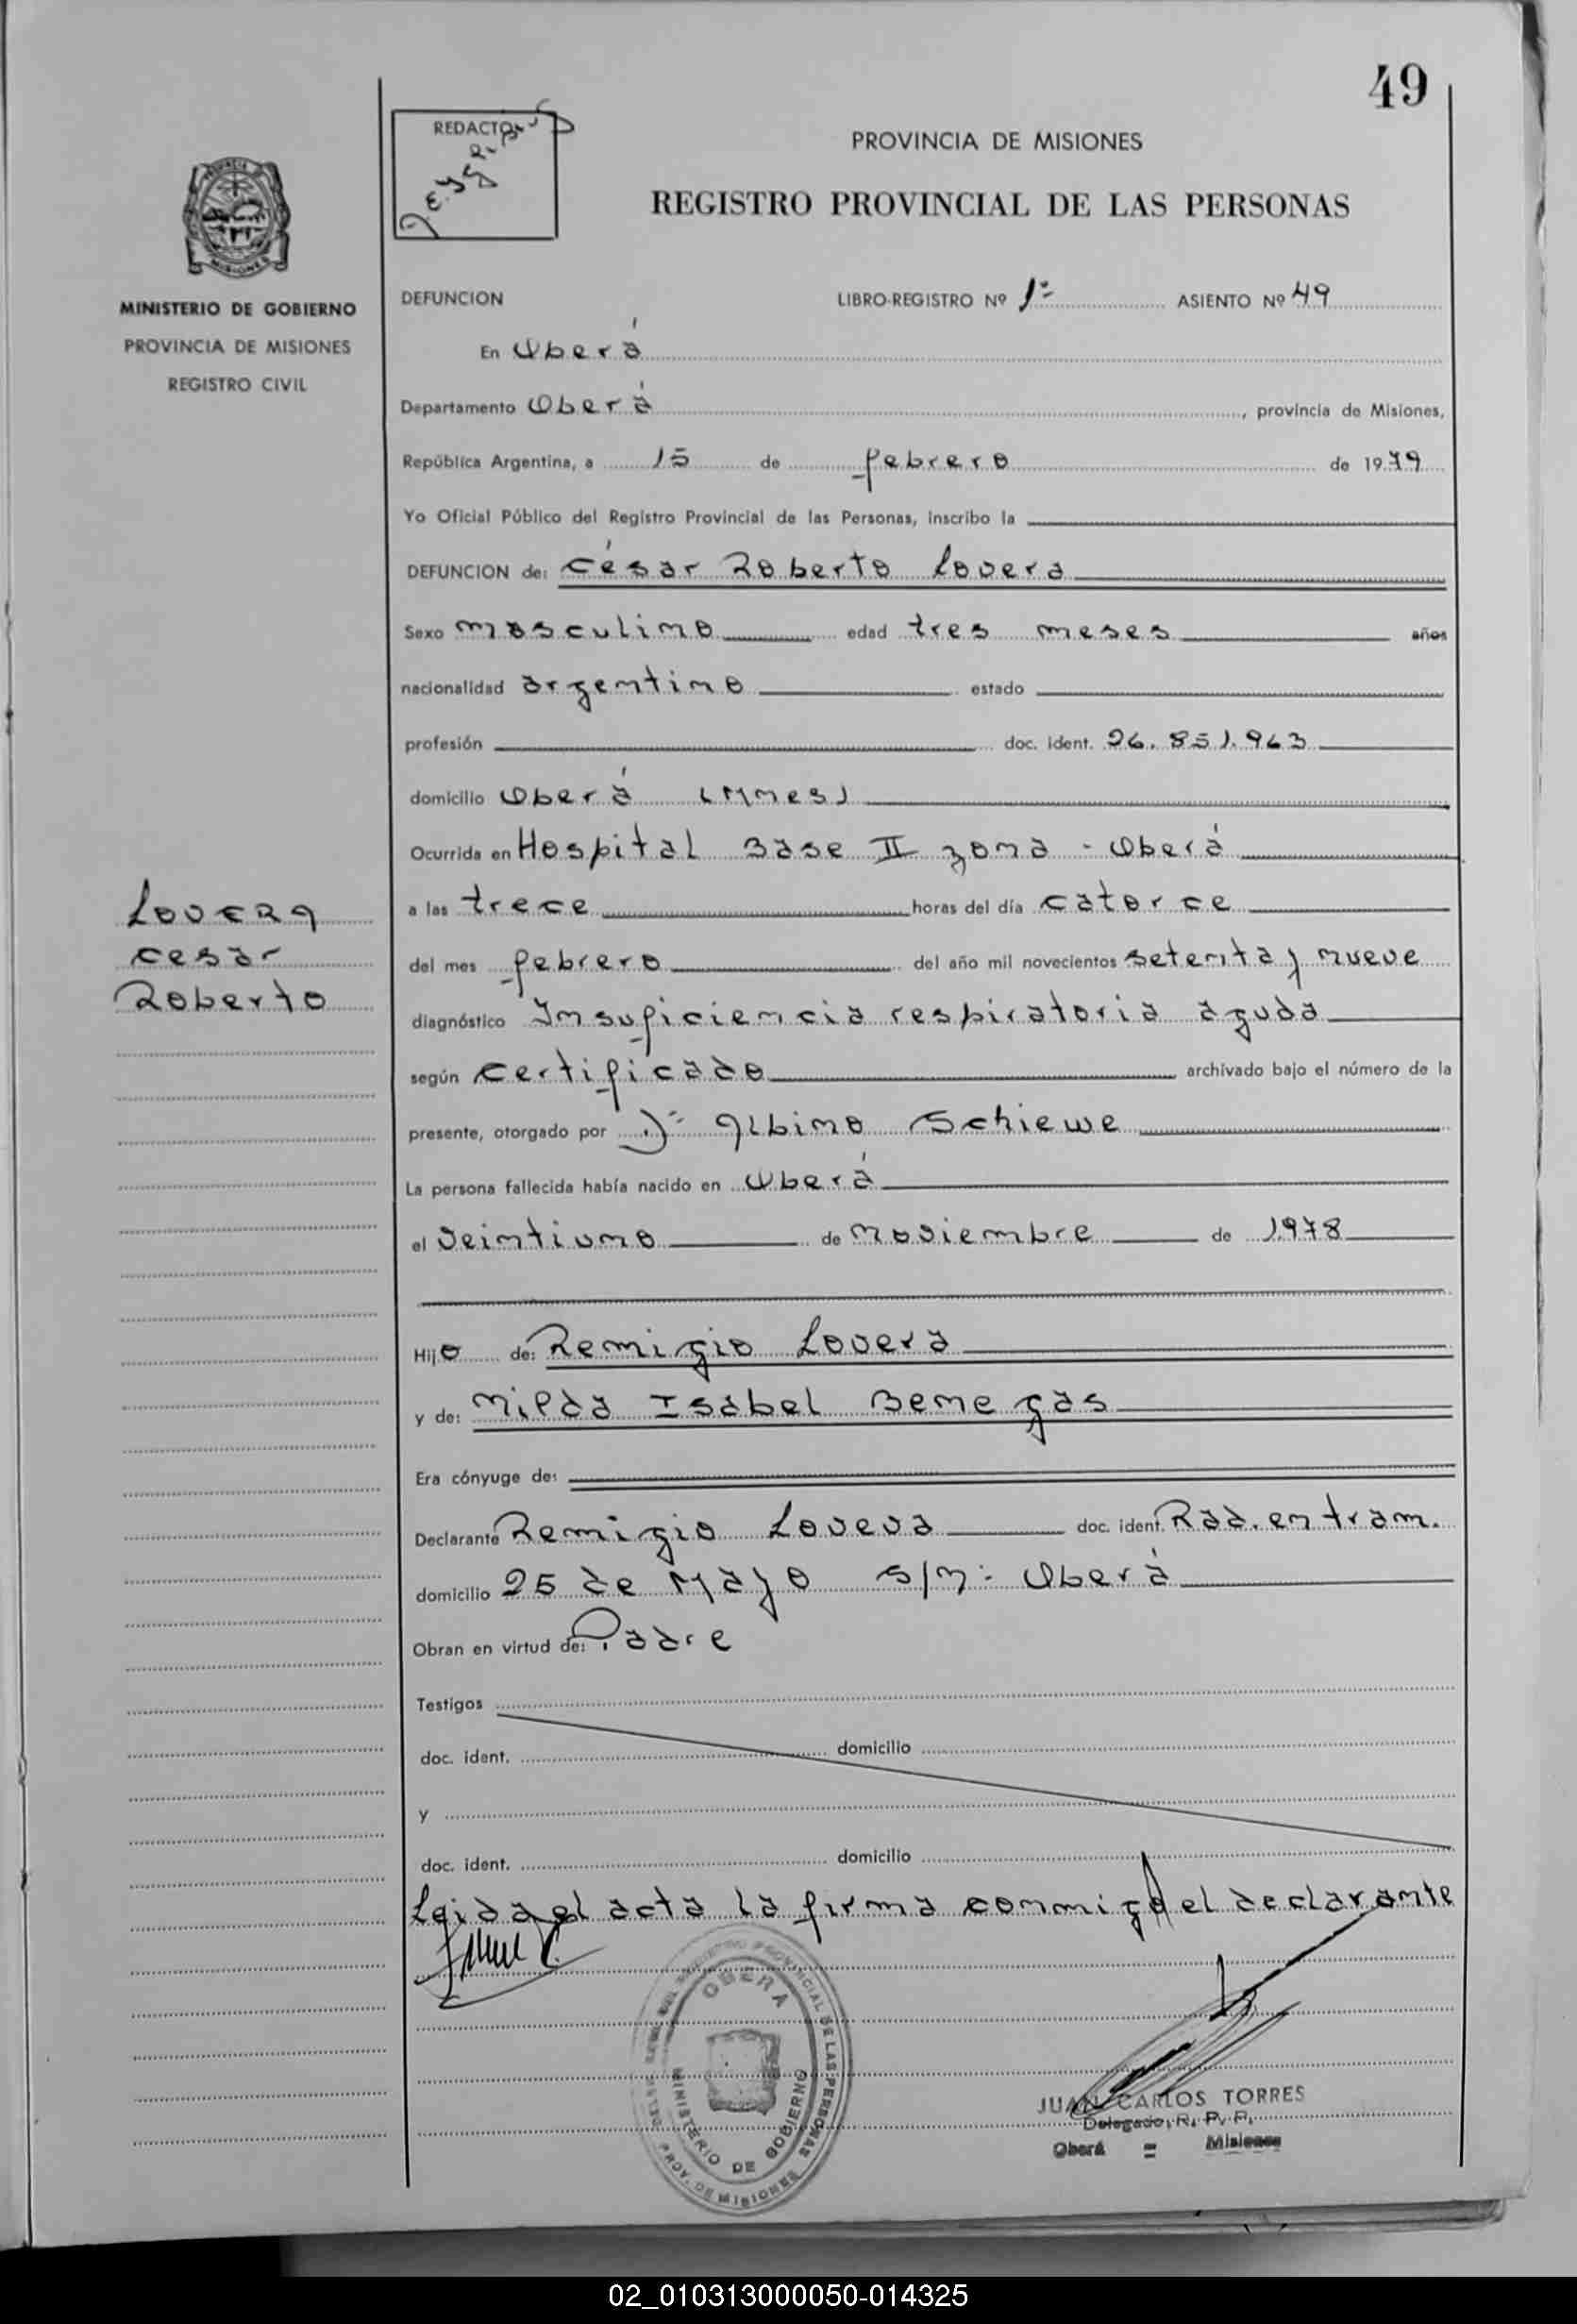 49
REDACTOR
PROVINCIA DE MISIONES
REGISTRO PROVINCIAL DE LAS PERSONAS
MINISTERIO DE GOBIERNO
PROVINCIA DE MISIONES
REGISTRO CIVIL
DEFUNCION LIBRO-REGISTRO Nº 1º ASIENTO Nº 49
En Oberá
Departamento Oberá, provincia de Misiones,
República Argentina, a 15 de febrero de 1979
Yo Oficial Público del Registro Provincial de las Personas, inscribo la
DEFUNCION de: César Roberto Lovera
Sexo masculino edad tres meses años
nacionalidad argentino estado
profesión doc. ident. 26.851.963
domicilio Oberá (Mnes)
Ocurrida en Hospital Base II zona - Oberá
Lovera
Cesar
Roberto
a las trece horas del día catorce
del mes febrero del año mil novecientos setenta y nueve
diagnóstico Insuficiencia respiratoria aguda
según certificado archivado bajo el número de la
presente, otorgado por Dr Albino Schiewe
La persona fallecida había nacido en Oberá
el veintiuno de noviembre de 1978
Hijo de: Remigio Lovera
y de: Nilda Isabel Benegas
Era cónyuge de:
Declarante Remigio Lovera doc. ident. Rad. en tram.
domicilio 25 de Mayo s/nº Oberá
Obran en virtud de: Padre
Testigos
doc. ident. domicilio
y
doc. ident. domicilio
Leida el acta la firma conmigo el declarante
REGISTRO PROVINCIAL DE LAS PERSONAS
OBERA
MINISTERIO DE GOBIERNO
PROV. DE MISIONES
JUAN CARLOS TORRES
Delegado, R. P. P.
Oberá = Misiones
02_010313000050-014325